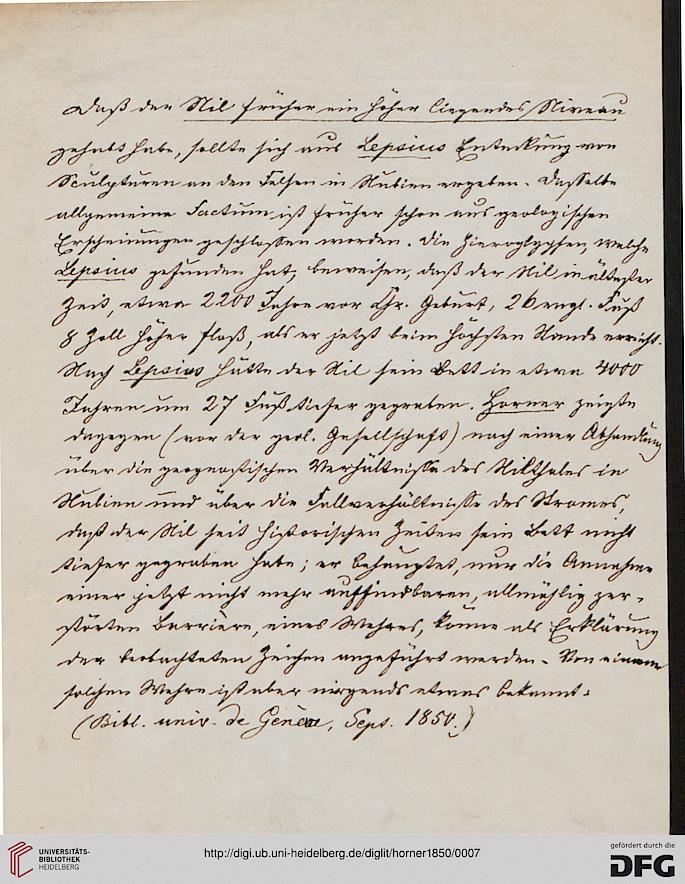 Daß der Nil früher ein höher liegendes Niveau
gehabt habe, sollte sich aus Lepsius Entdeckung von
Sculpturen an den Felsen in Nubien ergeben. Dasselbe
allgemeine Factum ist früher schon aus geologischen
Erscheinungen geschlossen worden. Die Hieroglyphen, welche
Lepsius gefunden hat, beweisen, daß der Nil in ältester
Zeit, etwa 2200 Jahre vor Chr. Geburt, 26 engl. Fuß
8 Zoll höher floß, als er jetzt beim höchsten Stande erreicht.
Nach Lepsius hätte der Nil sein Bett in etwa 4000
Jahren um 27 Fuß tiefer gegraben. Horner zeigte
dagegen (vor der geol. Gesellschaft) nach einer Abhandlung
über die geognostischen Verhältnisse des Nilthales in
Nubien und über die Fallverhältnisse des Stromes,
daß der Nil seit historischen Zeiten sein Bett nicht
tiefer gegraben habe; er behauptet, nur die Annahme
einer jetzt nicht mehr auffindbaren, allmählig zer-
störten Barriere, eines Wehres, könne als Erklärung
der beobachteten Zeichen angeführt werden. Von einem
solchen Wehre ist aber nirgends etwas bekannt.
(Bibl. univ. de Genève, Sept. 1850.)
UNIVERSITÄTS-
BIBLIOTHEK
HEIDELBERG
http://digi.ub.uni-heidelberg.de/diglit/horner1850/0007
gefördert durch die
DFG